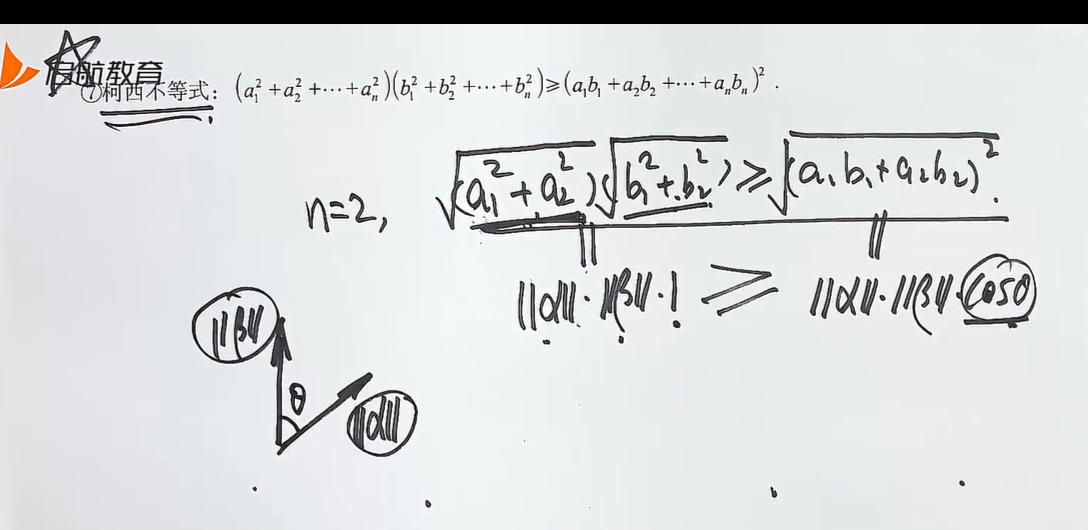 启航教育
⑦柯西不等式：(a₁²+a₂²+⋯+aₙ²)(b₁²+b₂²+⋯+bₙ²)≥(a₁b₁+a₂b₂+⋯+aₙbₙ)².
n=2, √(a₁²+a₂²) √(b₁²+b₂²) ≥ √(a₁b₁+a₂b₂)².
‖α‖·‖β‖·1 ≥ ‖α‖·‖β‖·cosθ
‖β‖
θ
‖α‖